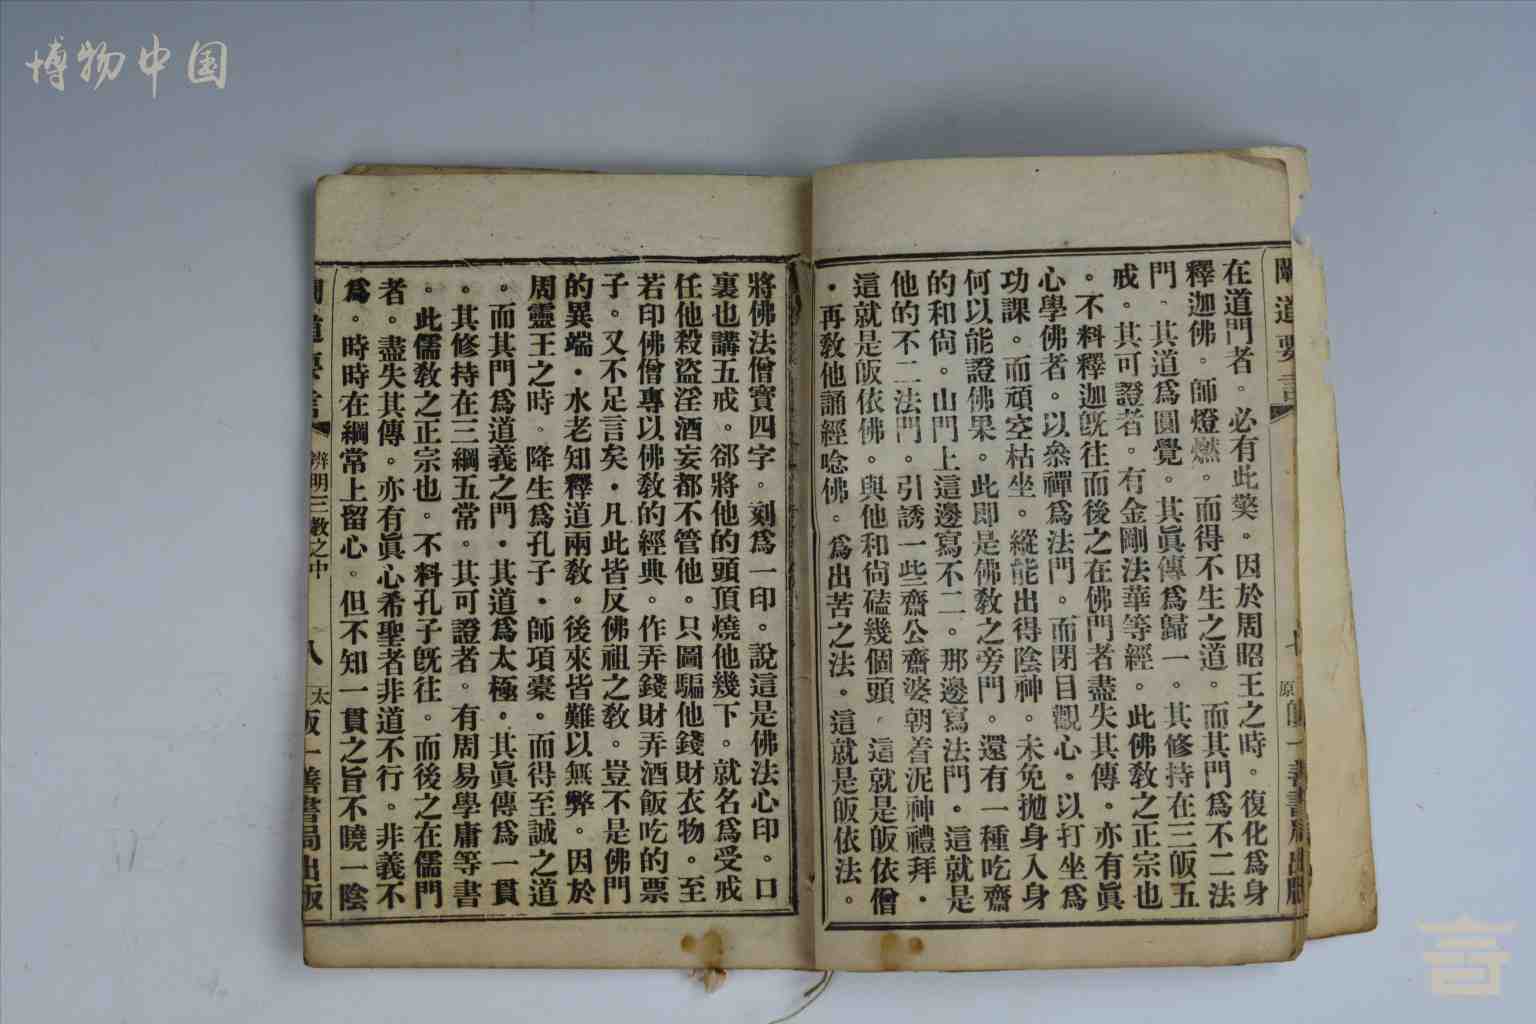 博物中国
闡道要言
七
原
一善書局出版
在道門者。必有此獘。因於周昭王之時。復化爲身
釋迦佛。師燈燃。而得不生之道。而其門爲不二法
門。其道爲圓覺。其眞傳爲歸一。其修持在三皈五
戒。其可證者。有金剛法華等經。此佛敎之正宗也
。不料釋迦旣往而後之在佛門者盡失其傳。亦有眞
心學佛者。以叅禪爲法門。而閉目觀心。以打坐爲
功課。而頑空枯坐。縱能出得陰神。未免拋身入身
何以能證佛果。此即是佛敎之旁門。還有一種吃齋
的和尙。山門上這邊寫不二。那邊寫法門。這就是
他的不二法門。引誘一些齋公齋婆朝着泥神禮拜。
這就是皈依佛。與他和尙磕幾個頭。這就是皈依僧
。再敎他誦經唸佛。爲出苦之法。這就是皈依法。
將佛法僧寳四字。刻爲一印。說這是佛法心印。口
裏也講五戒。郤將他的頭頂燒他幾下。就名爲受戒
任他殺盜淫酒妄都不管他。只圖騙他錢財衣物。至
若印佛僧專以佛敎的經典。作弄錢財弄酒飯吃的票
子。又不足言矣。凡此皆反佛祖之敎。豈不是佛門
的異端。水老知釋道兩敎。後來皆難以無弊。因於
周靈王之時。降生爲孔子。師項橐。而得至誠之道
。而其門爲道義之門。其道爲太極。其眞傳爲一貫
。其修持在三綱五常。其可證者。有周易學庸等書
。此儒敎之正宗也。不料孔子旣往。而後之在儒門
者。盡失其傳。亦有眞心希聖者非道不行。非義不
爲。時時在綱常上留心。但不知一貫之旨不曉一陰
闡道要言
辨明三敎之中
八
太
一善書局出版
言